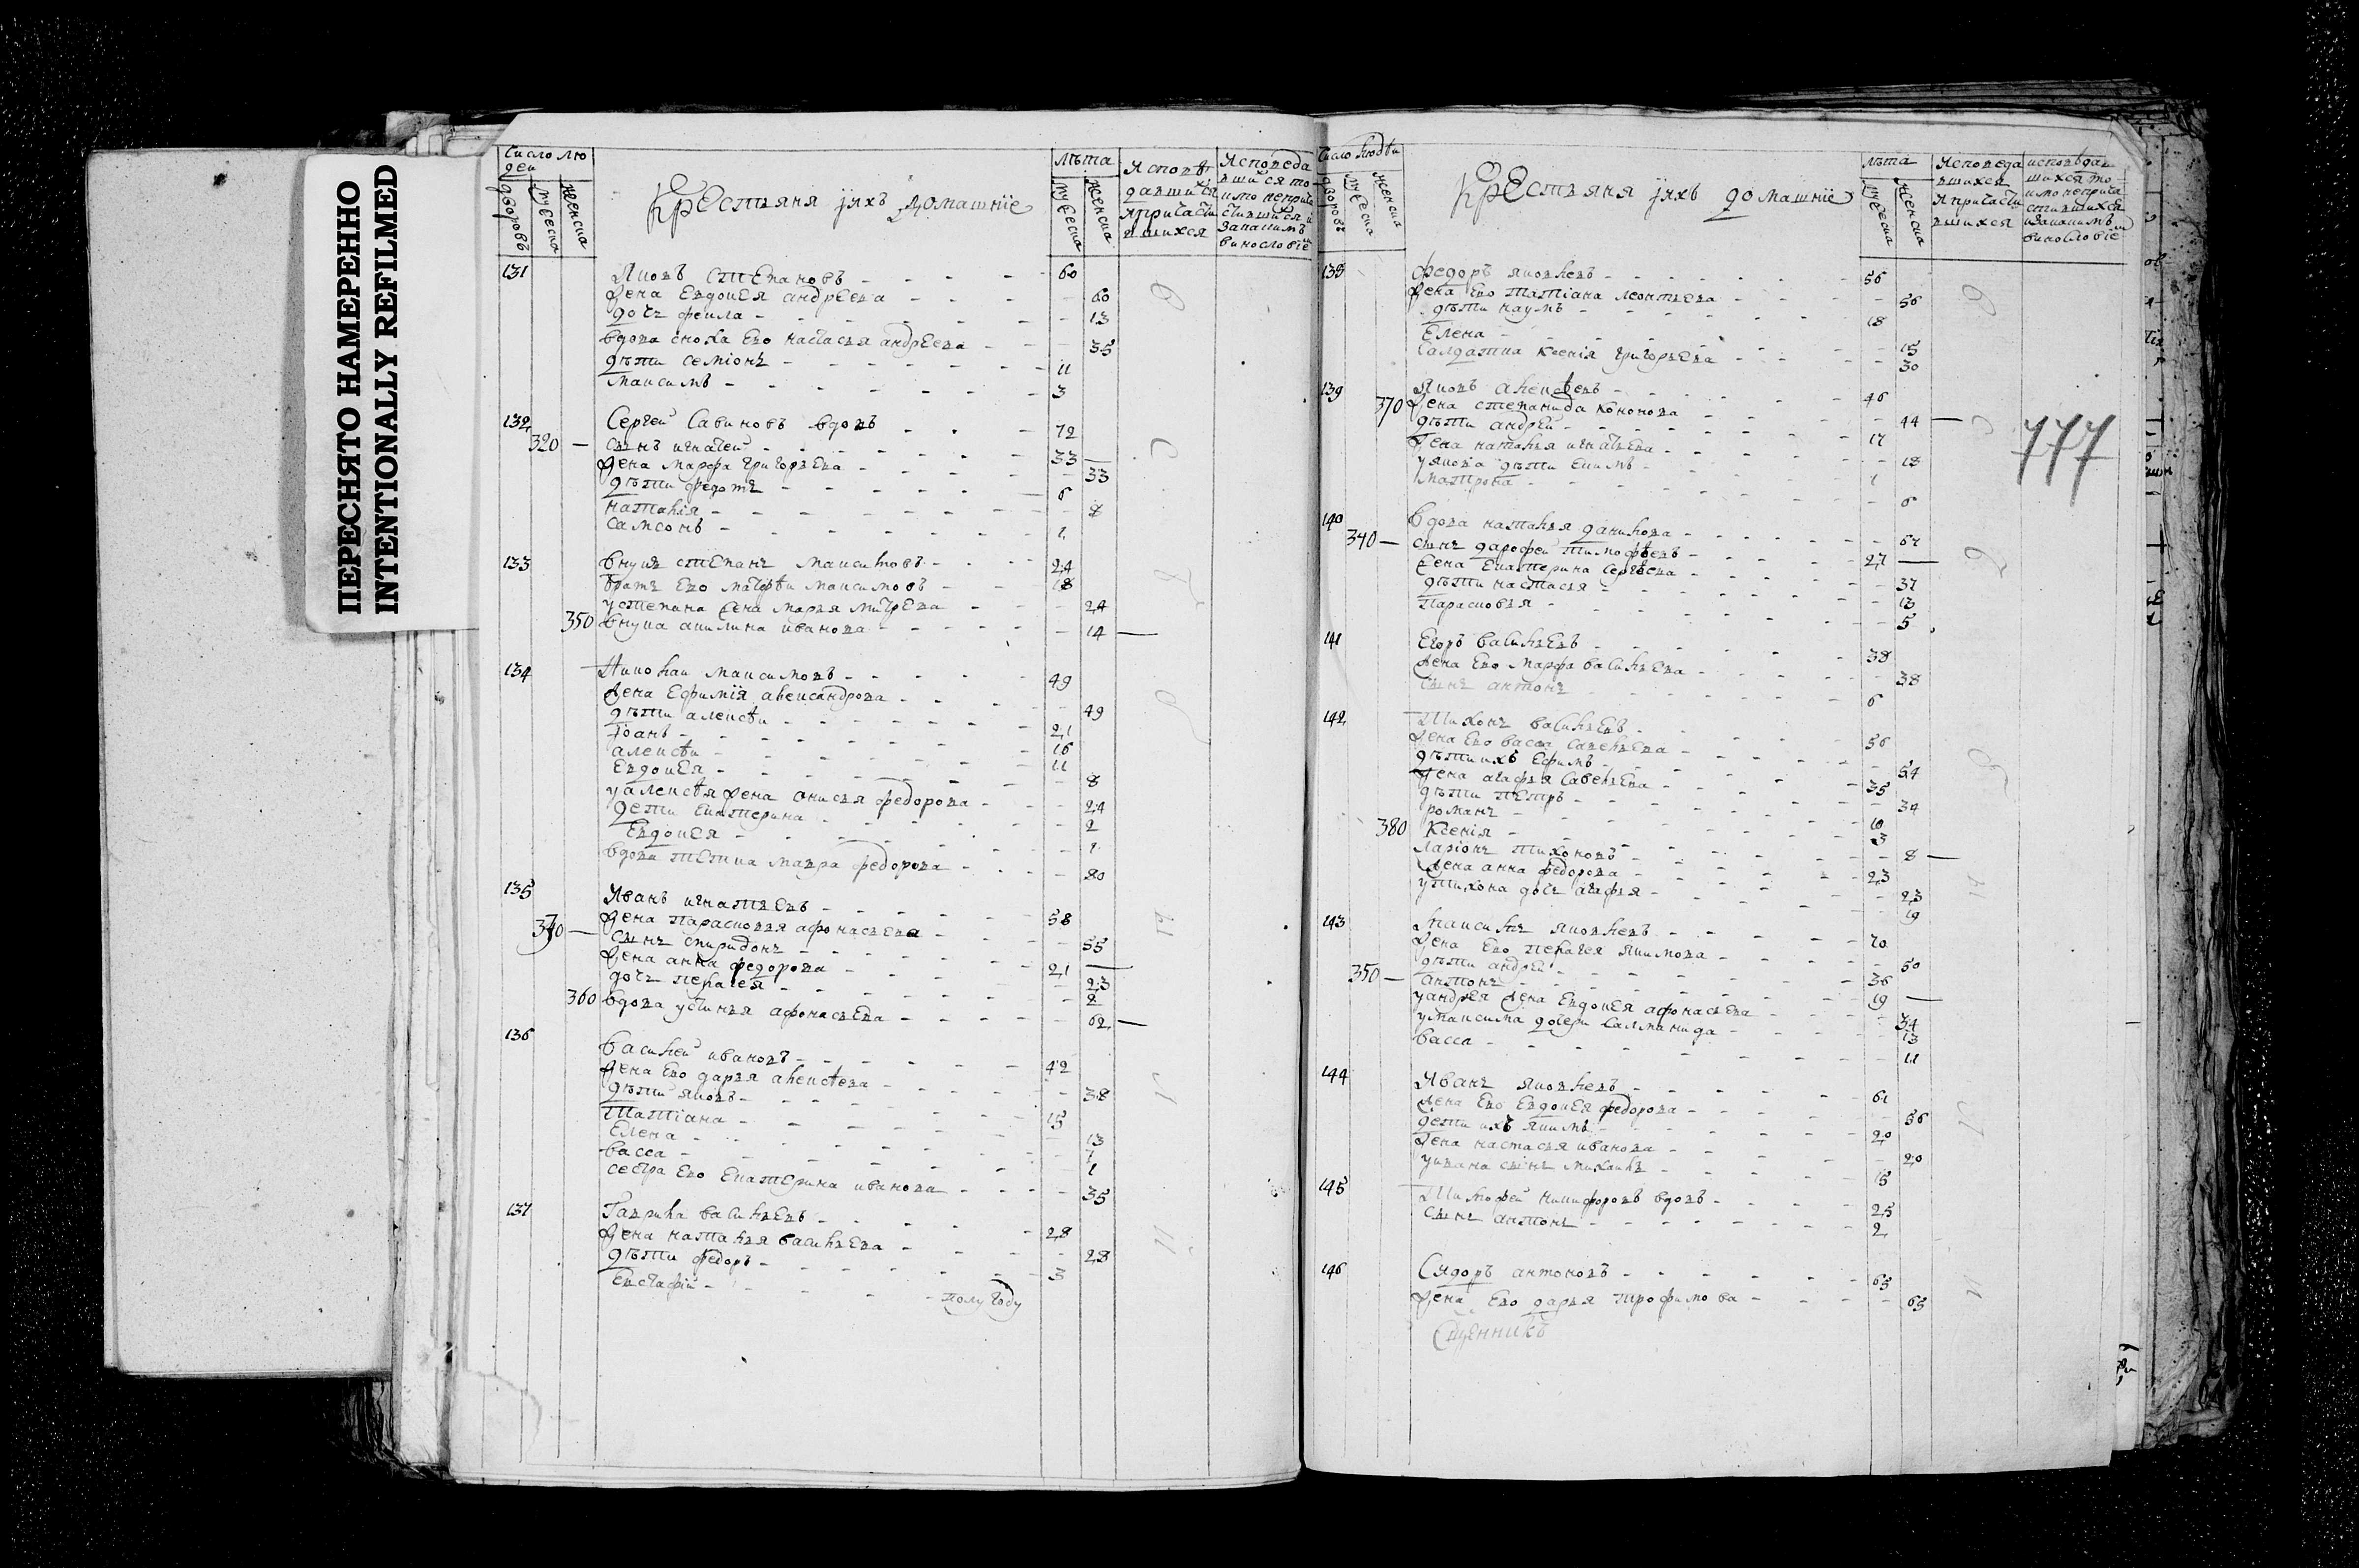 ПЕРЕСНЯТО НАМЕРЕННО
INTENTIONALLY REFILMED
Число лю
деи
дворовъ
мужеска
женска
Крестьяня ихъ домашнїе
лѣта
мужеска
женска
Исповѣ
давшихся
ипричасти
вшихся
131 Яковъ степановъ - 60
жена Евдокея андрѣева - 60
дочь фекла - 13
вдова сноха Ево настасья андрѣева - 35
дѣти семіонъ - 11
максимъ - 3
132 Сергей Савиновъ вдовъ - 72
320 — сынъ игнатей - 33
жена марфа григорьева - 33
дѣти федотъ - 6
наталія - 8
самсонъ - 1
133 внукъ степанъ максимовъ - 24
братъ Ево матфѣи максимовъ - 18
устепана жена марья - 24
350 внука акилина иванова - 14 —
134 Николаи максимовъ - 49
жена Ефимїя александрова - 49
дѣти алексѣи - 21
Іоанъ - 16
алексѣи - 11
Евдокея - 8
уалексѣя жена анисья федорова - 24
дети Екатерина - 2
Евдокея - 1
вдова тетка мавра федорова - 80
135 Иванъ игнатьевъ - 58
жена парасковья афонасьева - 55
сынъ спиридонъ - 21 —
жена анна федорова - 23
дочь пелагея - 2
360 вдова устинья афонасьева - 62 —
136 василей ивановъ - 42
жена Ево дарья алексѣева - 38
дѣти яковъ - 15
Татіана - 13
Елена - 7
васса - 1
сестра Ево Екатерина иванова - 35
137 Гаврила васильевъ - 28
жена наталья васильева - 28
дѣти федоръ - 3
Евстафіи - полу году
Число людѣи
дворовъ
мужеска
женска
Крестьяня ихъ домашнїе
лѣта
мужеска
женска
Исповеда
вшихся
ипричасти
вшихся
138 федоръ яковлевъ - 56
жена Ево татіана леонтьева - 56
дѣти наумъ - 18
Елена - 15
салдатка ксенія григорьева - 30
139 Яковъ алексѣевъ - 46
370 жена степанида кононова - 44 —
дѣти андрѣй - 17
жена наталья игнатьева - 18
уякова дѣти Екимъ - 1
матрона - 6
140 вдова наталья данилова - 67
340 — сынъ дарофеи тимофѣевъ - 27 —
жена Екатерина сергѣева - 37
дѣти настасья - 13
парасковья - 5
141 Егоръ васильевъ - 38
жена Ево марфа васильева - 38
сынъ антонъ - 6
142 Тихонъ васильевъ - 56
жена Ево васса савельева - 54
дѣти ихъ Ефимъ - 35
жена агафья савельева - 34
дѣти петръ - 10
романъ - 3
380 ксенія - 8 —
ларіонъ тихоновъ - 23
жена анна федорова - 23
утихона дочь агафья - 19
143 максимъ яковлевъ - 70
жена Ево пелагея якимова - 50
дѣти андрѣй - 36
350 — антонъ - 19 —
уандрѣя жена Евдокея афонасьева - 34
умаксима дочери саламанида - 13
васса - 11
144 Иванъ яковлевъ - 61
жена Ево Евдокея федорова - 56
дети ихъ якимъ - 20
жена настасья иванова - 20
уивана сынъ михаилъ - 15
145 Тимофеи никифоровъ вдовъ - 25
сынъ антонъ - 2
146 Сидоръ антоновъ - 65
жена Ево дарья трофимова - 65
777